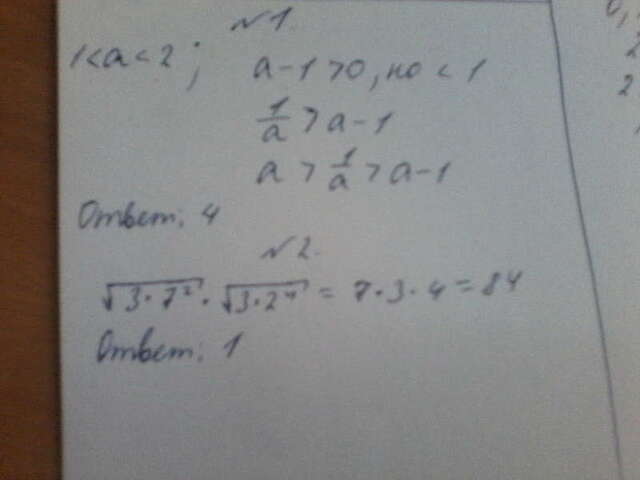 №1.
1<a<2; a-1>0, но <1
1/a > a-1
a > 1/a > a-1
Ответ: 4
№2.
√(3·7²) · √(3·2⁴) = 7·3·4=84
Ответ: 1
0,
2
2